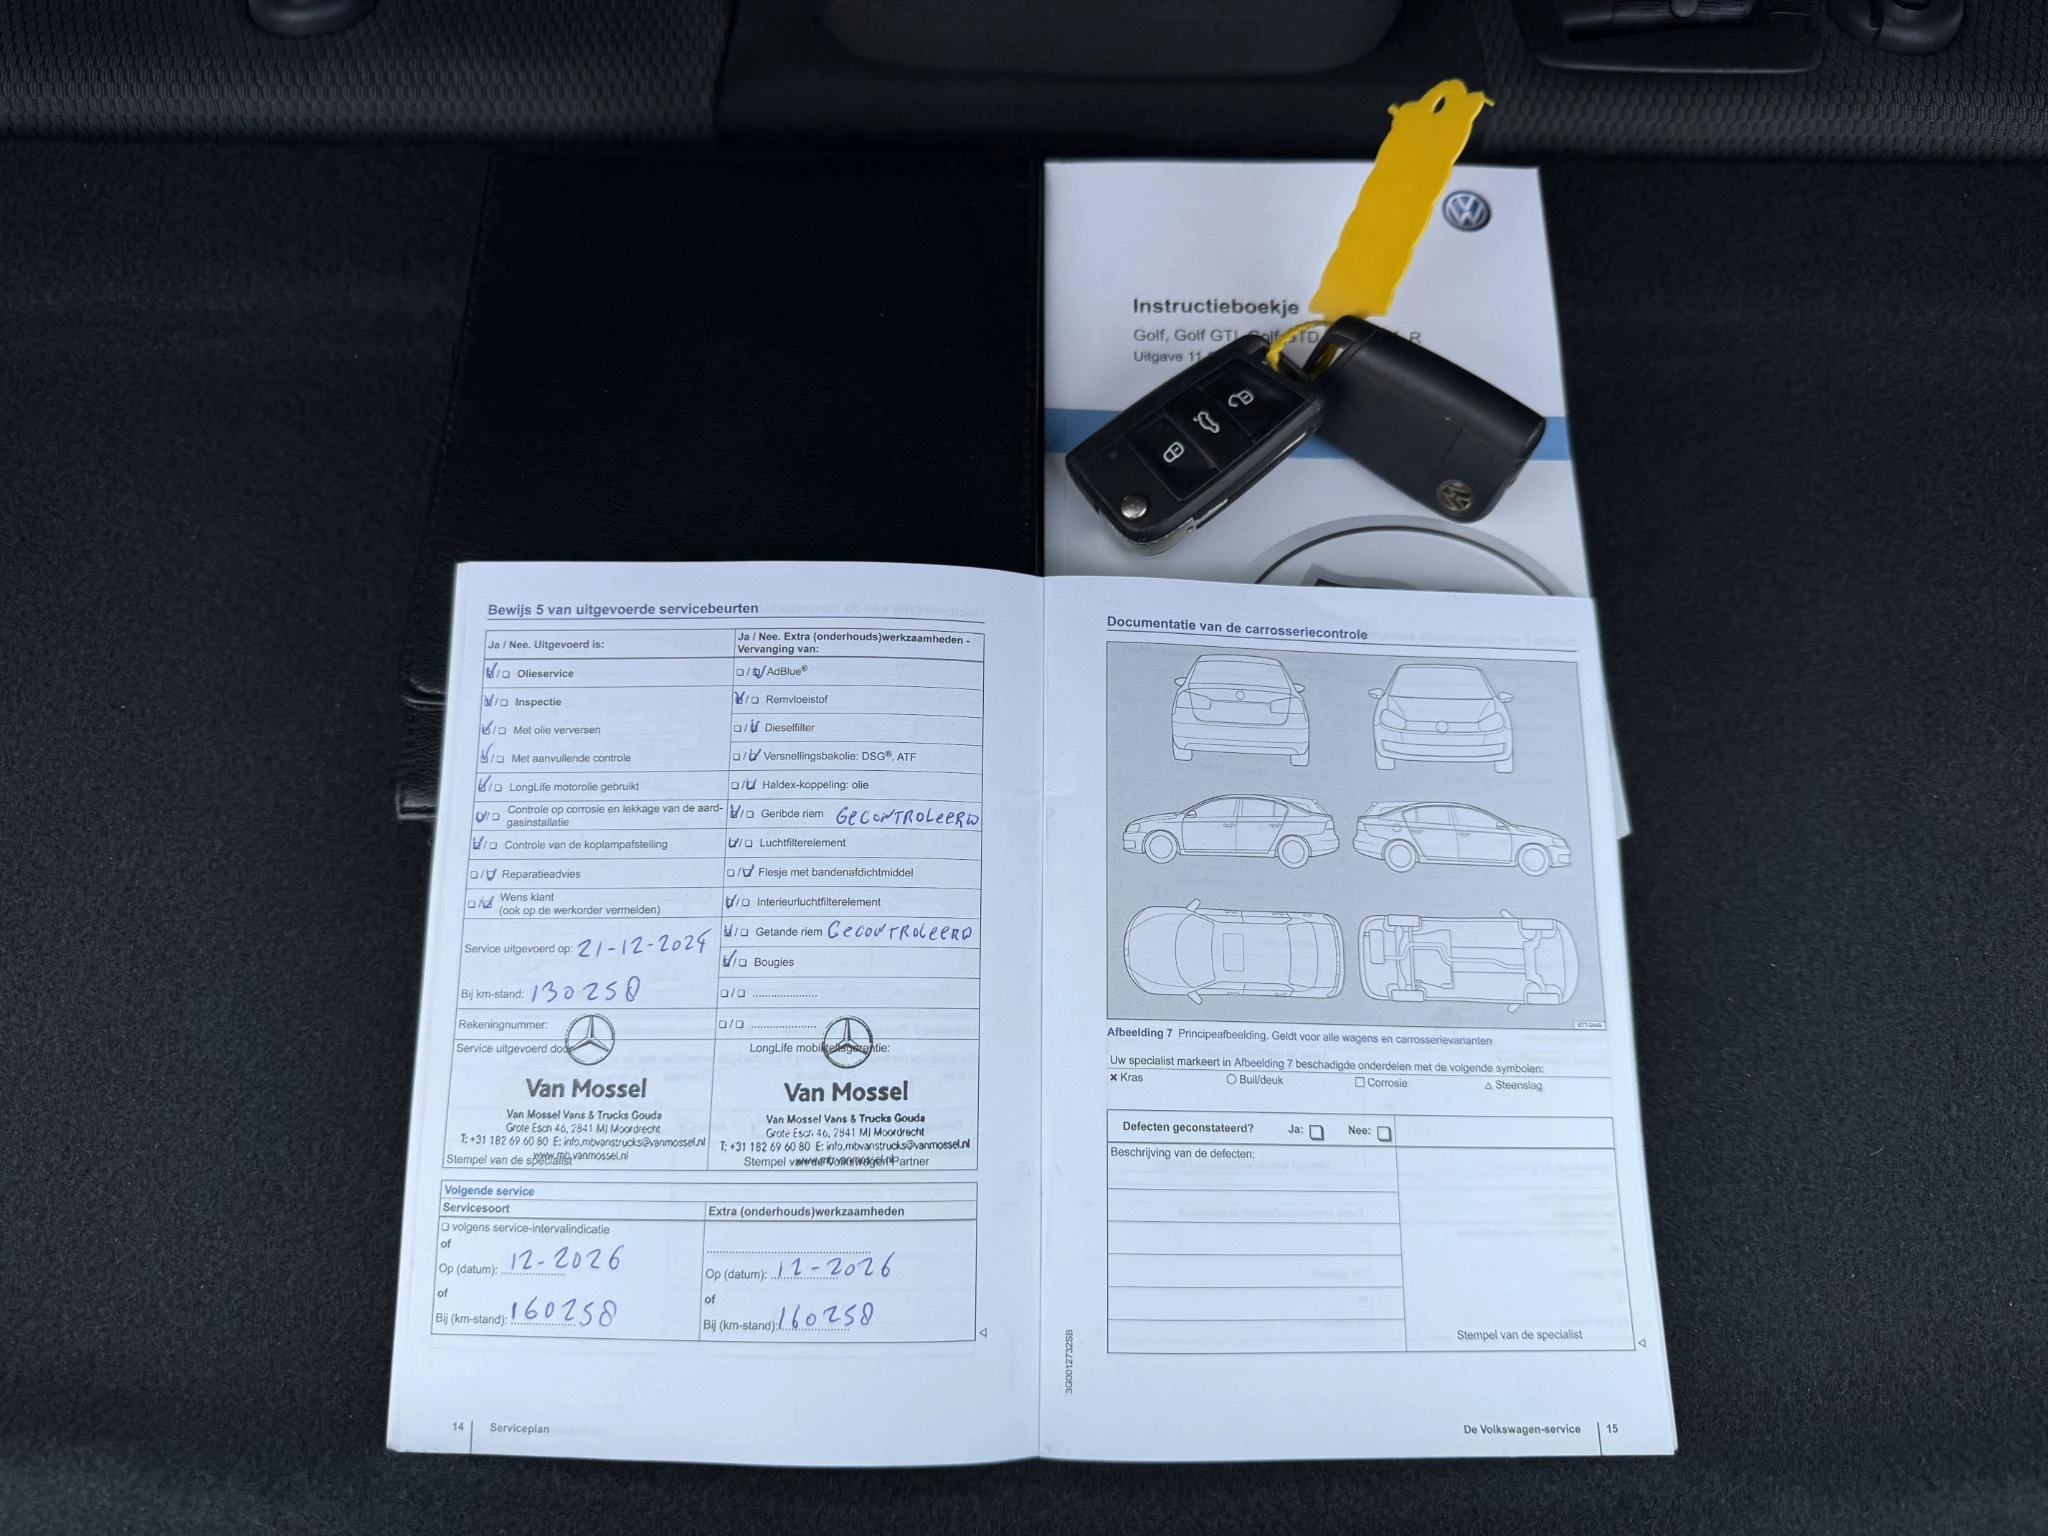 Instructieboekje
Golf, Golf GTI, Golf GTD R
Uitgave 11
Bewijs 5 van uitgevoerde servicebeurten
Ja / Nee. Uitgevoerd is:
Olieservice
Inspectie
Met olie verversen
Met aanvullende controle
LongLife motorolie gebruikt
Controle op corrosie en lekkage van de aard-
gasinstallatie
Controle van de koplampafstelling
Reparatieadvies
Wens klant
(ook op de werkorder vermelden)
Service uitgevoerd op: 21-12-2024
Bij km-stand: 130258
Rekeningnummer:
Service uitgevoerd door
Van Mossel
Van Mossel Vans & Trucks Gouda
Grote Esch 46, 2841 MJ Moordrecht
T: +31 182 69 60 80 E: info.mbvanstrucks@vanmossel.nl
www.mb.vanmossel.nl
Stempel van de specialist
Ja / Nee. Extra (onderhouds)werkzaamheden -
Vervanging van:
AdBlue®
Remvloeistof
Dieselfilter
Versnellingsbakolie: DSG®, ATF
Haldex-koppeling: olie
Geribde riem GECONTROLEERD
Luchtfilterelement
Flesje met bandenafdichtmiddel
Interieurluchtfilterelement
Getande riem GECONTROLEERD
Bougies
LongLife mobiliteitsgarantie:
Van Mossel
Van Mossel Vans & Trucks Gouda
Grote Esch 46, 2841 MJ Moordrecht
T: +31 182 69 60 80 E: info.mbvanstrucks@vanmossel.nl
www.mb.vanmossel.nl
Stempel van de Volkswagen Partner
Volgende service
Servicesoort
volgens service-intervalindicatie
of
Op (datum): 12-2026
of
Bij (km-stand): 160258
Extra (onderhouds)werkzaamheden
Op (datum): 12-2026
of
Bij (km-stand): 160258
14 Serviceplan
Documentatie van de carrosseriecontrole
Afbeelding 7 Principeafbeelding. Geldt voor alle wagens en carrosserievarianten
Uw specialist markeert in Afbeelding 7 beschadigde onderdelen met de volgende symbolen:
Kras Buil/deuk Corrosie Steenslag
Defecten geconstateerd? Ja: Nee:
Beschrijving van de defecten:
Stempel van de specialist
3G0012732SB
De Volkswagen-service 15